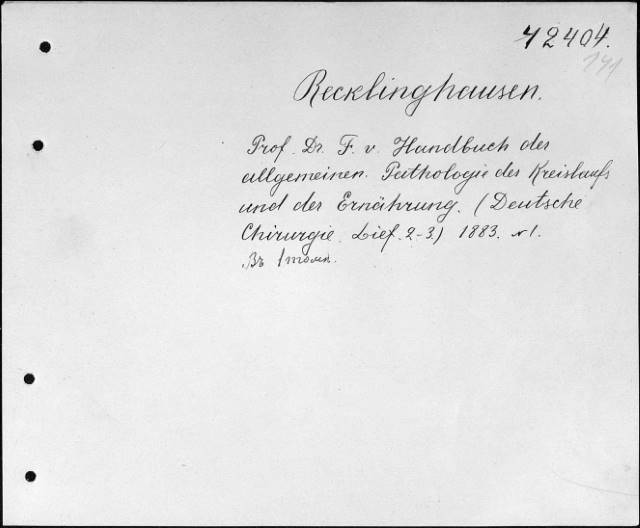 42404.
141
Recklinghausen.
Prof. Dr. F. v. Handbuch des
allgemeinen. Pathologie des Kreislaufs
und der Ernährung. (Deutsche
Chirurgie. Lief. 2-3.) 1883. N 1.
Въ 1 томѣ.